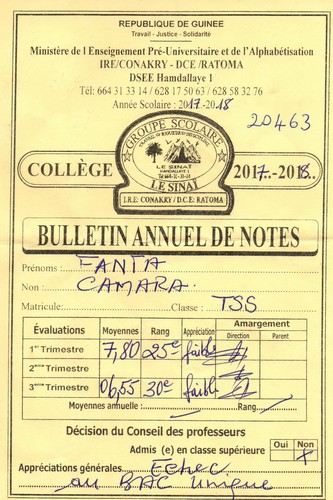 REPUBLIQUE DE GUINEE
Travail - Justice - Solidarité
Ministère de l Enseignement Pré-Universitaire et de l'Alphabétisation
IRE/CONAKRY - DCE /RATOMA
DSEE Hamdallaye 1
Tél: 664 31 33 14 / 628 17 50 63 / 628 58 32 76
Année Scolaire : 2017-2018
20463
GROUPE SCOLAIRE
LE SINAI
HAMDALLAYE 1
COLLÈGE
2017-2018
LE SINAI
I.R.E: CONAKRY / D.C.E: RATOMA
BULLETIN ANNUEL DE NOTES
Prénoms : FANTA
Non : CAMARA
Matricule: Classe : TSS
Évaluations Moyennes Rang Appréciation Amargement
Direction Parent
1er Trimestre 7,80 25e faible
2ème Trimestre
3ème Trimestre 06,55 30e faible
Moyennes annuelle : Rang
Décision du Conseil des professeurs
Oui Non
Admis (e) en classe supérieure X
Appréciations générales Echec
au BAC unique